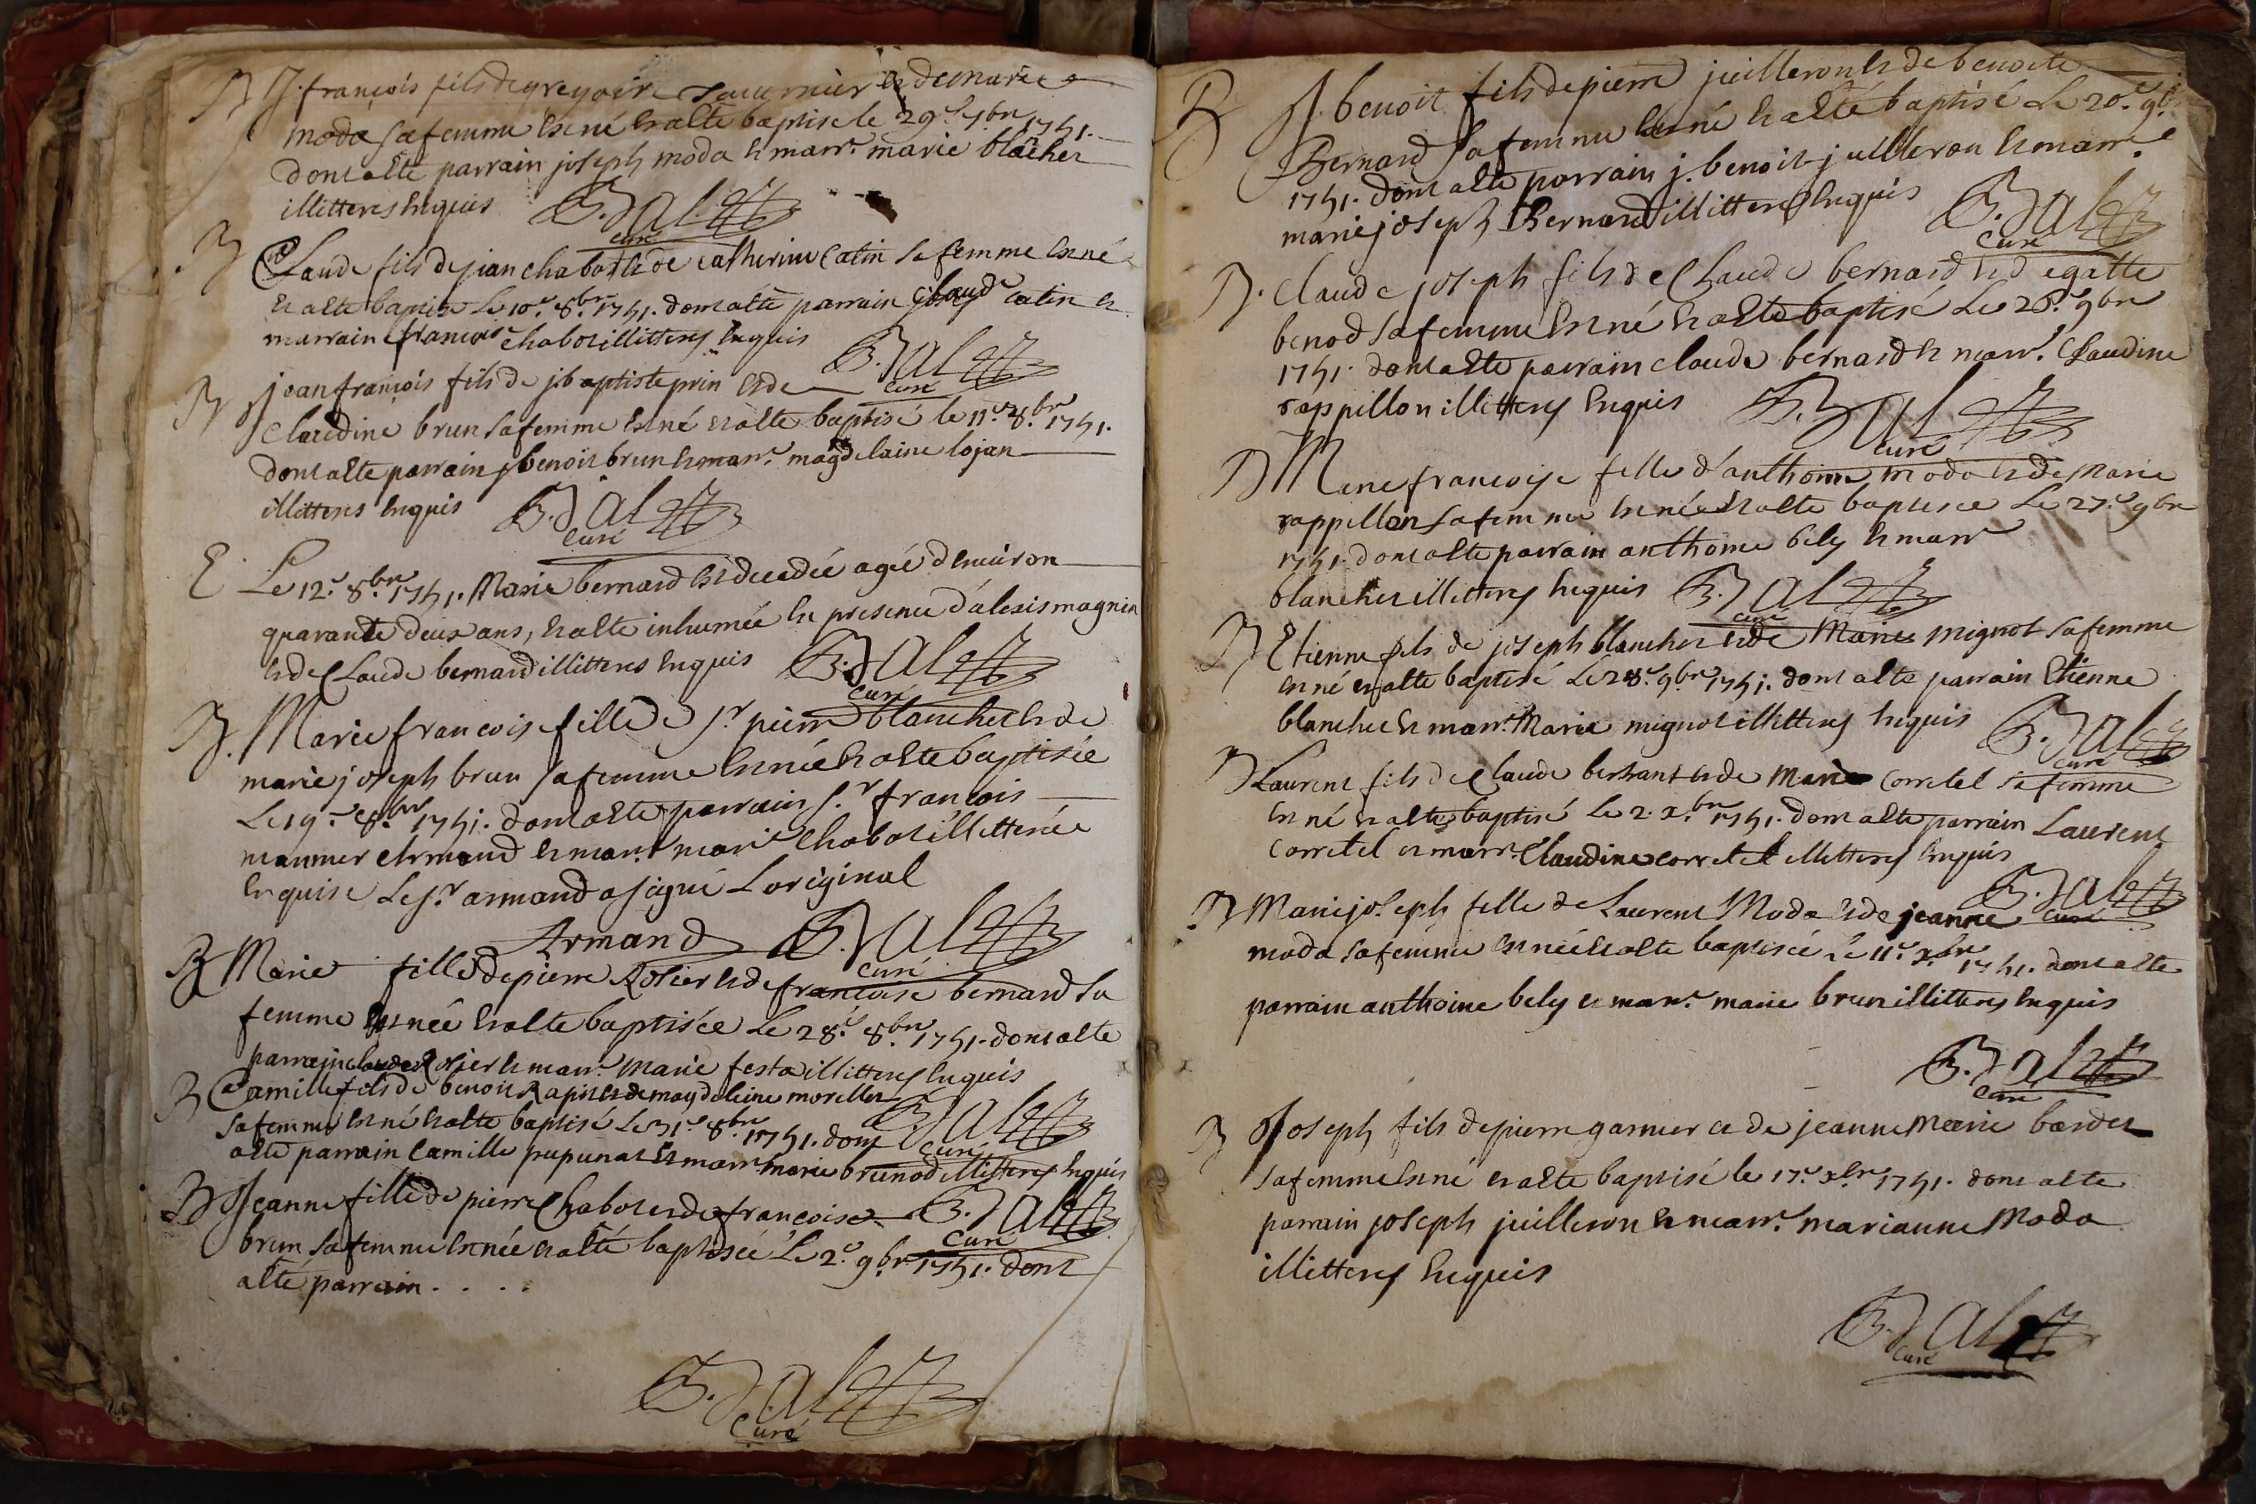 B J. françois fils de gregoire saunier et de marie
moda sa femme est né et a esté baptisé le 29.e 7.bre 1751.
dont a esté parrain joseph moda et marr.e marie blâcher
illitterés enquis B. Dal
curé
B Claude fils de jean chabod et de catherine catin sa femme est né
et a esté baptisé Le 10.e 8.bre 1751. dont a esté parrain claude catin et
marraine françoise chabot illitterés enquis B. Dal
curé
B jean françois fils de j baptiste prin et de
claudine brun sa femme est né et a esté baptisé le 11.e 8.bre 1751.
dont a esté parrain j benoit brun et marr.e magdelaine lojan
illitterés enquis B. Dal
curé
E Le 12.e 8.bre 1751. Marie bernard est decedée agée d'environ
quarante deux ans, et a esté inhumée en presence d'alexis magnin
et de Claude bernard illitterés enquis B. Dal
curé
B. Marie françoise fille de s.r pierre blancher et de
marie joseph brun sa femme est née et a esté baptisée
Le 19.e 8.bre 1751. dont a esté parrain s.r françois
armand et marr.e marie chabot illitterée
enquise Le s.r armand a signé L'original
Armand B. Dal
curé
B Marie fille de pierre Rosier et de françoise bernard sa
femme est née et a esté baptisée Le 28.e 8.bre 1751. dont a esté
parrain claude Rosier et marr.e Marie festa illitterés enquis
B Camille fils de benoit Rapin et de magdeleine morellet
sa femme est né et a esté baptisé Le 31.e 8.bre 1751. dont B. Dal
a esté parrain Camille pupunat et marr.e marie brunod illitterés enquis
curé
B Jeanne fille de pierre Chabot et de françoise B. Dal
curé
brun sa femme est née et a esté baptisée Le 2.e 9.bre 1751. dont
a esté parrain . . . .
B. Dal
Curé
B J. benoit fils de pierre juilleron et de benoite
Bernard sa femme est né et a esté baptisé Le 20.e 9.bre
1751. dont a esté parrain j. benoit juilleron et marr.e
marie joseph Bernard illitterés enquis B. Dal
curé
B. Claude joseph fils de Claude bernard et d'egatte
benod sa femme est né et a esté baptisé Le 26.e 9.bre
1751. dont a esté parrain claude bernard et marr.e Claudine
rappillon illitterés enquis B. Dal
curé
B Marie françoise fille d'anthoine moda et de Marie
rappillon sa femme est née et a esté baptisée Le 27.e 9.bre
1751. dont a esté parrain anthoine bily et marr.e
blancher illitterés enquis B. Dal
curé
B Etienne fils de joseph blancher et de Marie mignot sa femme
est né et a esté baptisé Le 28.e 9.bre 1751. dont a esté parrain Etienne
blancher et marr.e Marie mignot illitterés enquis B. Dal
curé
B Laurent fils de Claude bertrant et de Marie Corretel sa femme
est né et a esté baptisé Le 2. x.bre 1751. dont a esté parrain Laurent
Corretel et marr.e Claudine corretel illitterés enquis
B. Dal
B Marie joseph fille de Laurent Moda et de jeanne curé
moda sa femme est née et a esté baptisée Le 11.e x.bre 1751. dont a esté
parrain anthoine bely et marr.e marie brun illitterés enquis
B. Dal
Curé
B Joseph fils de pierre garnier et de jeanne Marie bardet
sa femme est né et a esté baptisé le 17.e x.bre 1751. dont a esté
parrain joseph juilleron et marr.e marianne Moda
illitterés enquis
B. Dal
curé